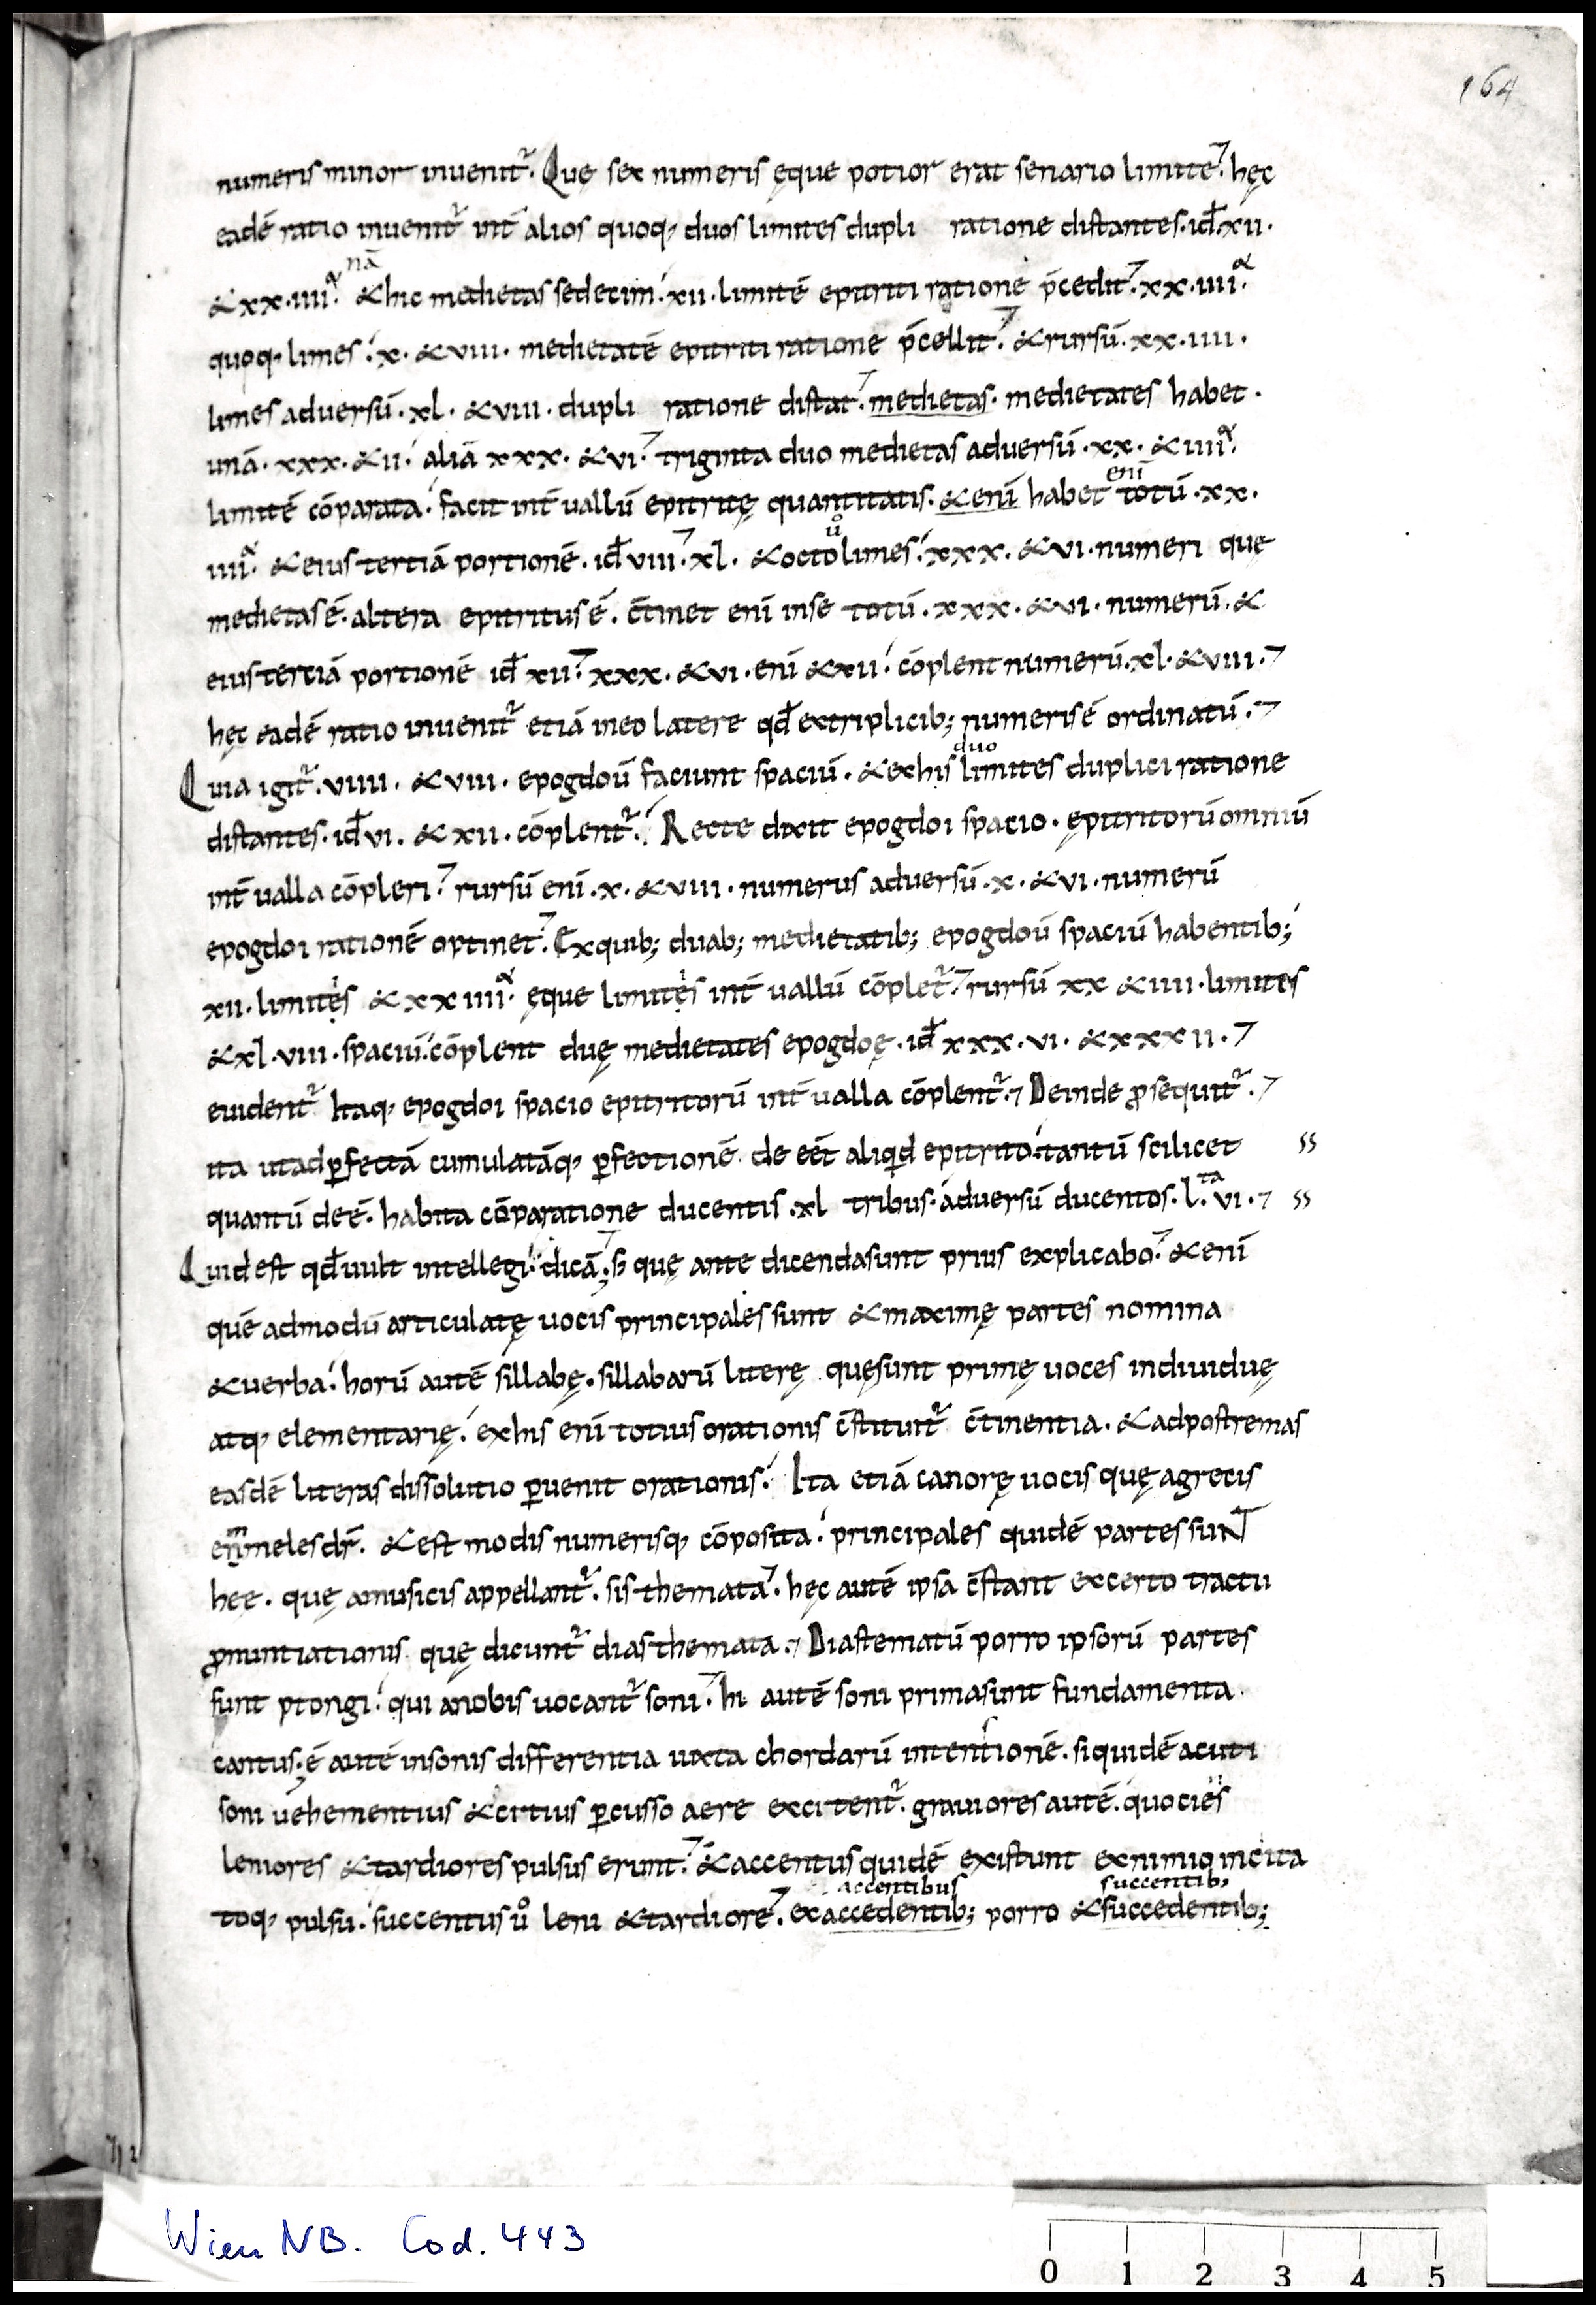 164
numeris minor inuenit᷑. Quę sex numeris ęque potior erat senario limite. hęc
eadē ratio inuenit᷑ int̄ alios quoq; duos limites dupli ratione distantes. id̄ xii.
nā
& xx. iiii.^or & hic medietas sedecim. xii. limitē epitriti ratione p̄cedit. xx. iiii.^or
quoq; limes. x. & viii. medietatē epitriti ratione p̄cellit. & rursū. xx. iiii.
limes aduersū. xl. & viii. dupli ratione distat. medietas. medietates habet.
unā. xxx. & ii. aliā xxx. & vi. triginta duo medietas aduersū. xx. & iiii^or.
enī
limitē cōparata. facit int̄uallū epitritę quantitatis. & enī habet totū. xx.
ů
iiii^or. & eius tertiā portionē. id̄ viii. xl. & octo limes. xxx. & vi. numeri quę
medietas ē. altera epitritus ē. c̄tinet enī in se totū. xxx. & vi. numerū. &
eius tertiā portionē id̄ xii. xxx. & vi. enī & xii. cōplent numerū. xl. & viii.
hęc eadē ratio inuenit᷑ etiā in eo latere qd̄ ex triplicib; numeris ē ordinatū.
duo
Quia igit᷑. viiii. & viii. epogdoū faciunt spaciū. & ex his limites duplici ratione
distantes. id̄ vi. & xii. cōplent᷑. Recte dixit epogdoi spacio. ępitritorū omniū
int̄ualla cōpleri. rursū enī. x. & viii. numerus aduersū. x. & vi. numerū
epogdoi rationē optinet. Ex quib; duab; medietatib; epogdoū spaciū habentib;
xii. limitẹⁱs & xx iiii^or. ęque limitẹⁱs int̄uallū cōplet᷑. rursū xx & iiii. limites
& xl. viii. spaciū. cōplent duę medietates epogdoę. id̄ xxx. vi. & xxx ii.
euident᷑ Itaq; epogdoi spacio epitritorū int̄ualla cōplent᷑. Deinde ꝓsequit᷑.
ita ut ad ꝑfectā cumulatāq; ꝑfectionē de eēt aliqid epitrito. tantū scilicet ss
quantū de ē. habita cōparatione ducentis. xl tribus. aduersū ducentos. l.^ta vi. ss
Quid est qd̄ uult intellegi. dicā; s; quę ante dicenda sunt prius explicabo. & enī
quē admodū articulatę uocis principales sunt & maximę partes nomina
& uerba. horū autē sillabę. sillabarū literę quę sunt primę uoces indiuiduę
atq; elementarię. ex his enī totius orationis c̄stituit᷑ c̄tinentia. & ad postremas
easdē literas dissolutio ꝑuenit orationis. Ita etiā canorę uocis quę a grecis
m
enmeles dr̄. & est modis numerisq; cōposita. principales quidē partes sunt
hee. quę a musicis appellant᷑. sisthemata. hęc autē ipsa c̄stant ex certo tractu
ꝓnuntiationis quę dicunt᷑ diasthemata. Diastematū porro ipsorū partes
sunt ptongi. qui a nobis uocant᷑ soni. hi autē soni prima sunt fundamenta.
s
cantus; ē autē in sonis differentia iuxta chordarū intentionē. siquidē acuti
soni uehementius & citius ꝑcusso aere excitent᷑. grauiores autē. quociēs
leniores & tardiores pulsus erunt. & accentus quidē existunt ex nimio incita
accentibus succentib;
toq; pulsu. succentus ů leni & tardiore. ex accedentib; porro & succedentib;
Wien NB. Cod. 443
0 1 2 3 4 5